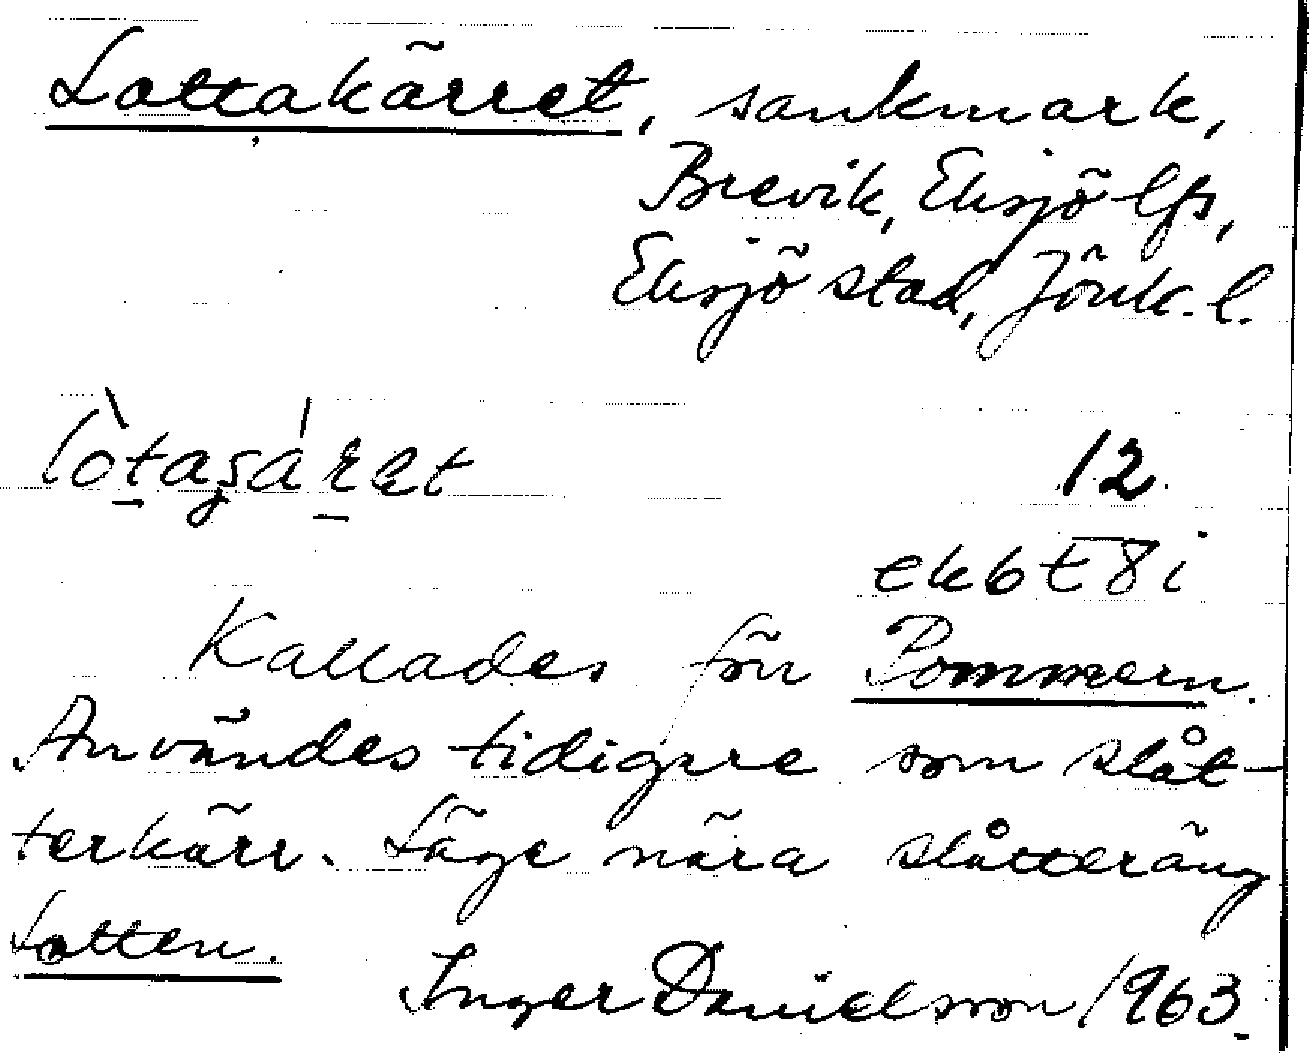 Lottakärret, sankmark,
Brevik, Eksjö lfs,
Eksjö stad, Jönk. l.
lòtaʂáret
12
ekbt8i
Kallades förr Pommern.
Användes tidigare som slåt-
terkärr. Läge nära slåtteräng
Lotten.
Inger Danielsson 1963.